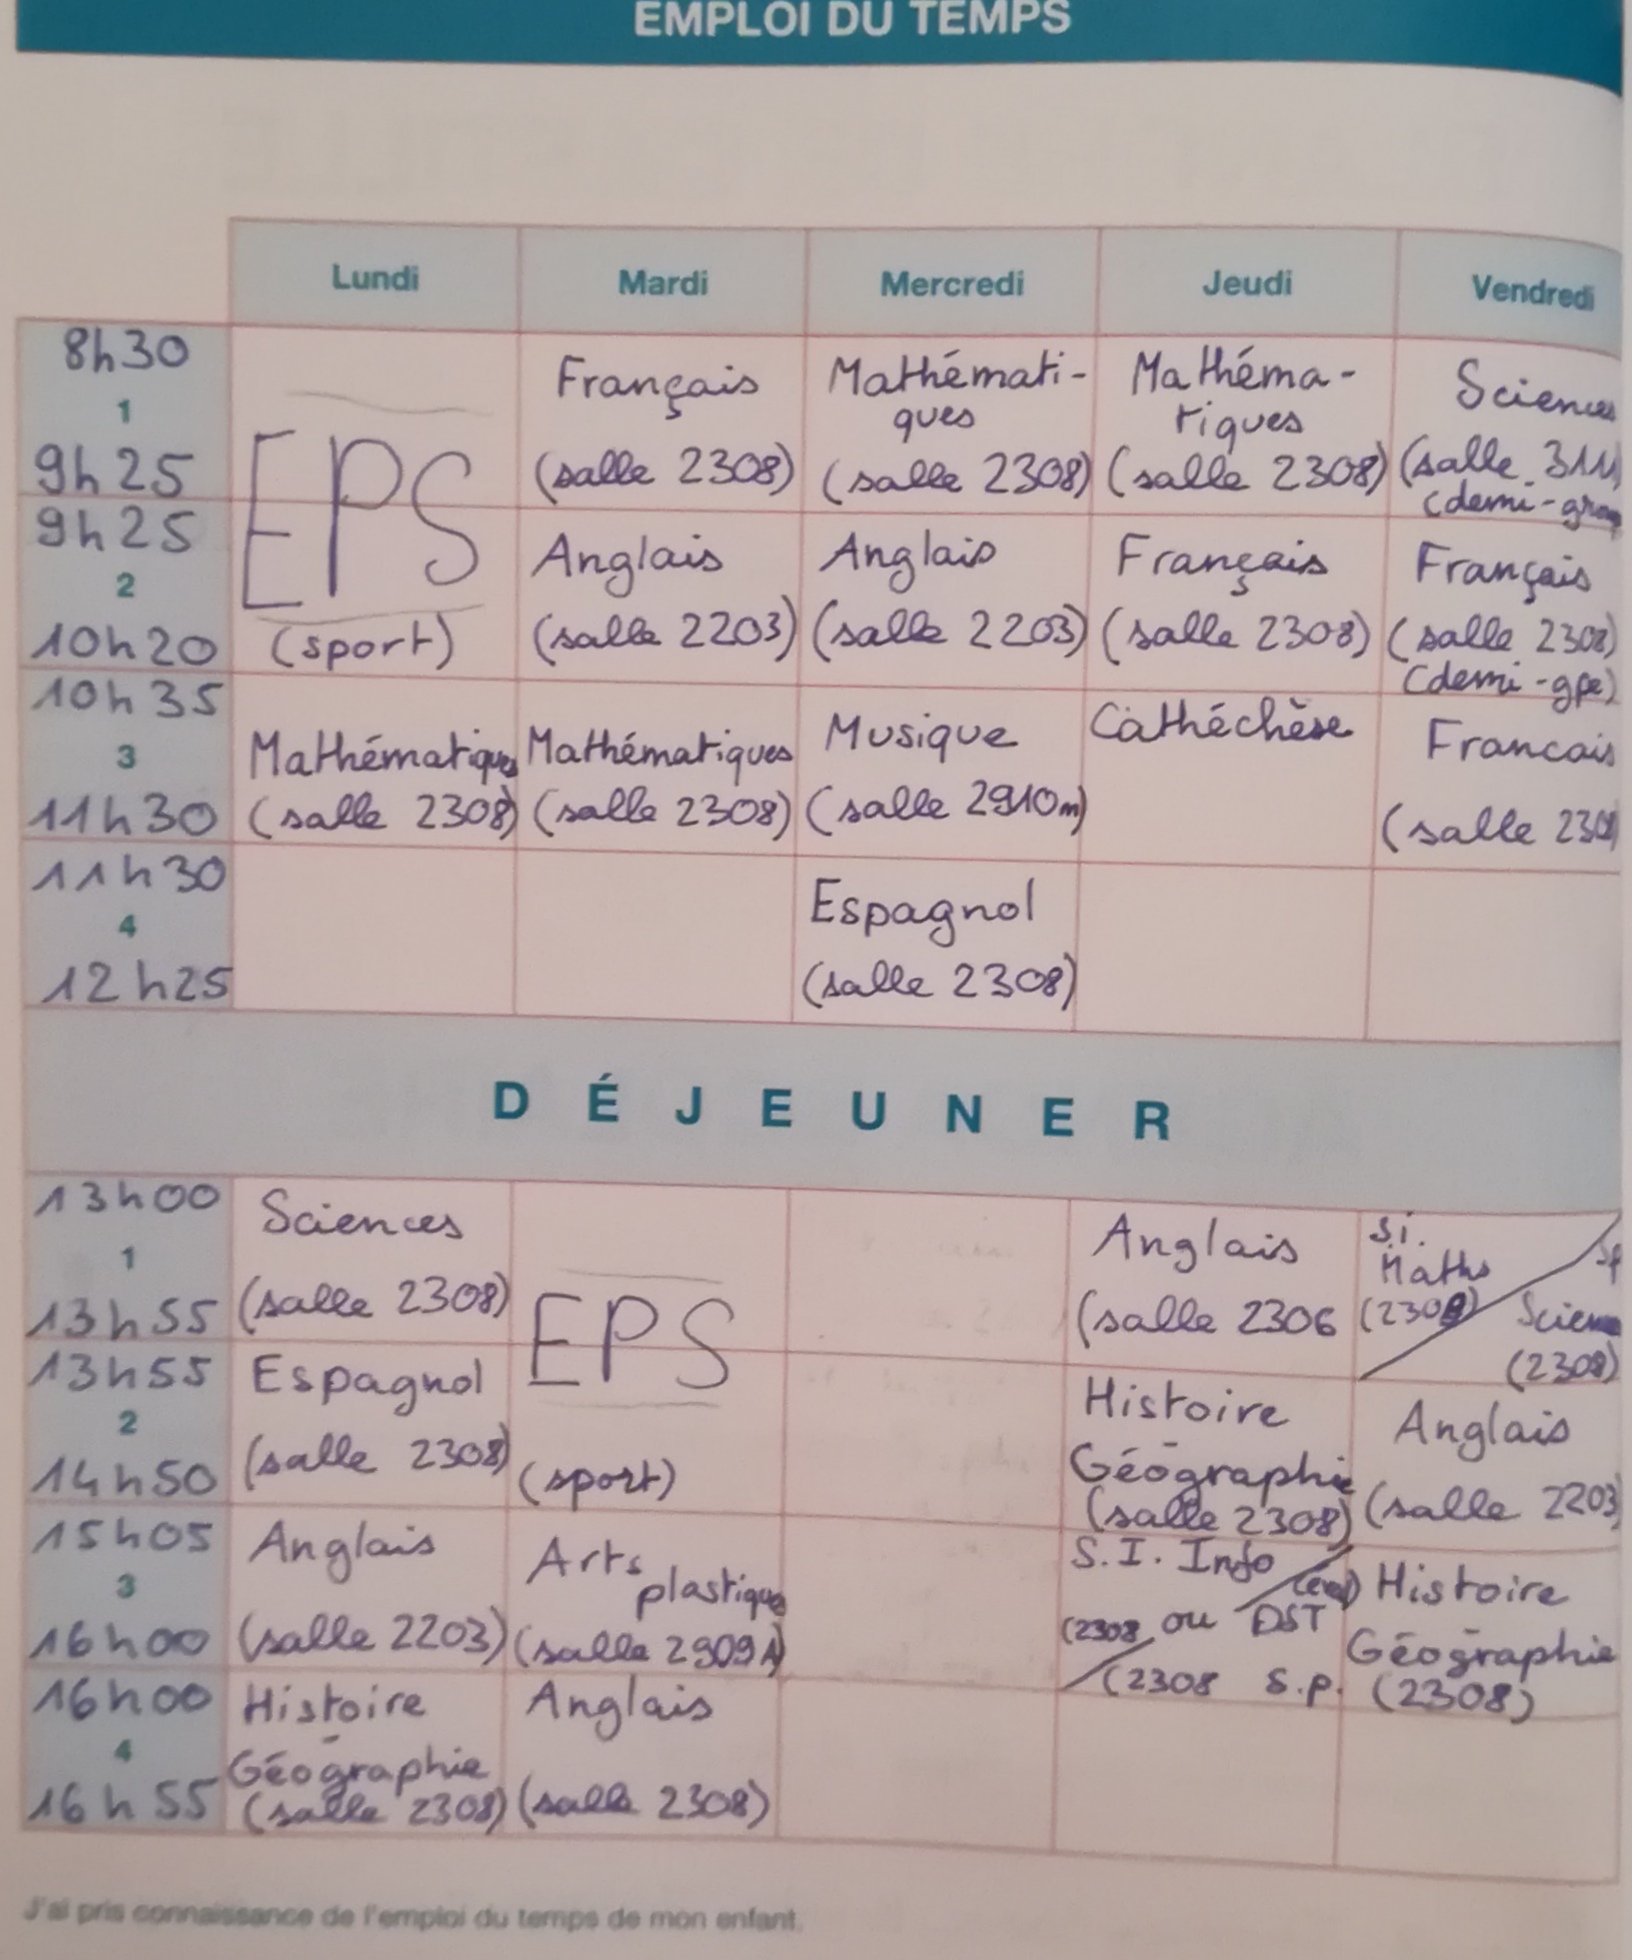 EMPLOI DU TEMPS
Lundi Mardi Mercredi Jeudi Vendredi
8h30
1
9h25
Français
(salle 2308)
Mathémati-
ques
(salle 2308)
Mathéma-
tiques
(salle 2308)
Sciences
(salle
(demi-
9h25
2
10h20
EPS
(sport)
Anglais
(salle 2203)
Anglais
(salle 2203)
Français
(salle 2308)
Français
(salle 2308)
(demi-gpe)
10h35
3
11h30
Mathématiques
(salle 2308)
Mathématiques
(salle 2308)
Musique
(salle 2910m)
Cathéchèse
Francais
(salle
11h30
4
12h25
Espagnol
(salle 2308)
DÉJEUNER
13h00
1
13h55
Sciences
(salle 2308)
EPS
(sport)
Anglais
(salle 2306
S.i.
Maths
(2308)
Sciences
(2308)
13h55
2
14h50
Espagnol
(salle 2308)
Histoire
Géographie
(salle 2308)
Anglais
(salle 2203
15h05
3
16h00
Anglais
(salle 2203)
Arts
plastiques
(salle 2909A)
S.I. Info
(2308 ou DST
(2308 S.p.
Histoire
Géographie
(2308)
16h00
4
16h55
Histoire
Géographie
(salle 2308)
Anglais
(salle 2308)
J'ai pris connaissance de l'emploi du temps de mon enfant.